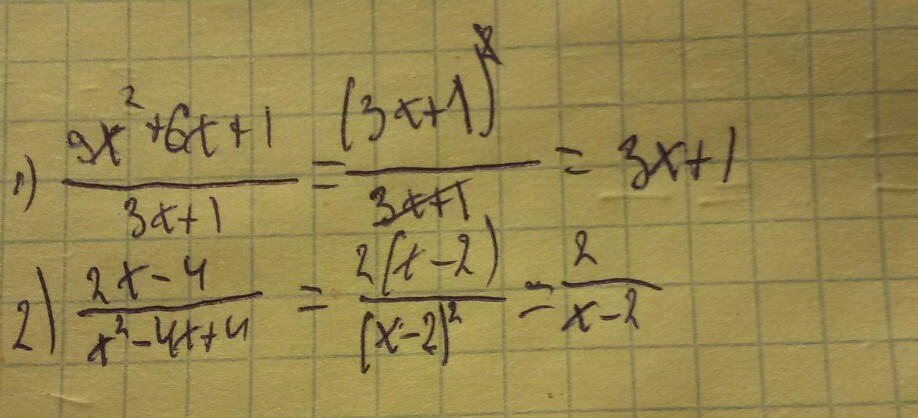 1) (9x²+6x+1)/(3x+1) = (3x+1)²/(3x+1) = 3x+1
2) (2x-4)/(x²-4x+4) = 2(x-2)/(x-2)² = 2/(x-2)